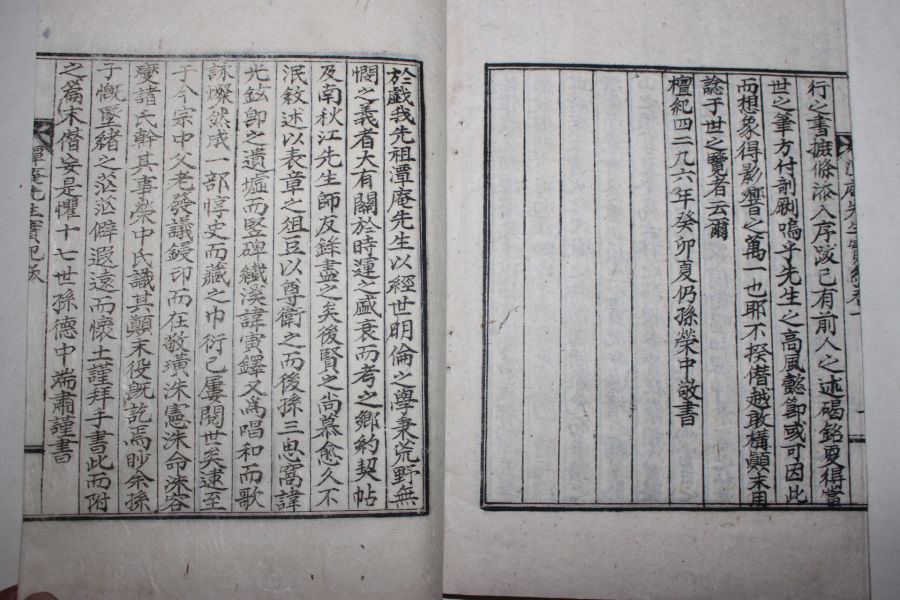 行之書摭條添入序跋已有前人之述碣銘更得當
世之筆方付剞劂嗚乎先生之高風懿節或可因此
而想象得影響之萬一也耶不揆僭越敢構顚末用
諗于世之覽者云爾
檀紀四二九六年癸卯夏仍孫榮中敬書
於戲我先祖澧庵先生以經世明倫之學秉荒野無
憫之義者大有關於時運之盛衰而考之鄕約契帖
及南秋江先生師友錄盡之矣後賢之尚慕愈久不
泯敘述以表章之俎豆以尊衛之而後孫三息窩諱
光鉉卽之遺墟而豎碑鐵溪諱寅鐸又爲唱和而歌
詠燦然成一部惇史而藏之巾衍已屢閱世矣逮至
于今宗中父老發議鋟印而在敬璜洙憲洙命洙容
燮諸氏幹其事榮中氏識其顚末役旣訖焉眇余孫
子慨墜緖之茫茫僻遐遠而懷土謹拜手書此而附
之篇末僭妄是懼十七世孫德中端肅謹書